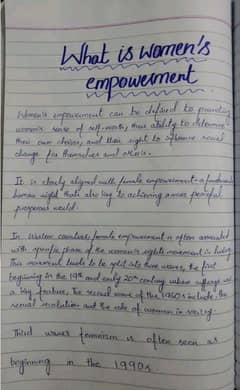 What is women's
empowerment
Women's empowerment can be defined to promoting
women's sense of self-worth, their ability to determine
their own choices, and their right to influence social
change for themselves and others.
It is closely aligned with female empowerment - a fundamental
human right that's also key to achieving a more peaceful
prosperous world.
In Western countries female empowerment is often associated
with specific phase of the women's rights movement in history
This movement tends to be split into three waves, the first
beginning in the 19th and early 20th century where suffrage was
a key feature. The second wave of the 1960s include the
sexual revolution and the role of women in society.
Third wave feminism is often seen as
beginning in the 1990s.